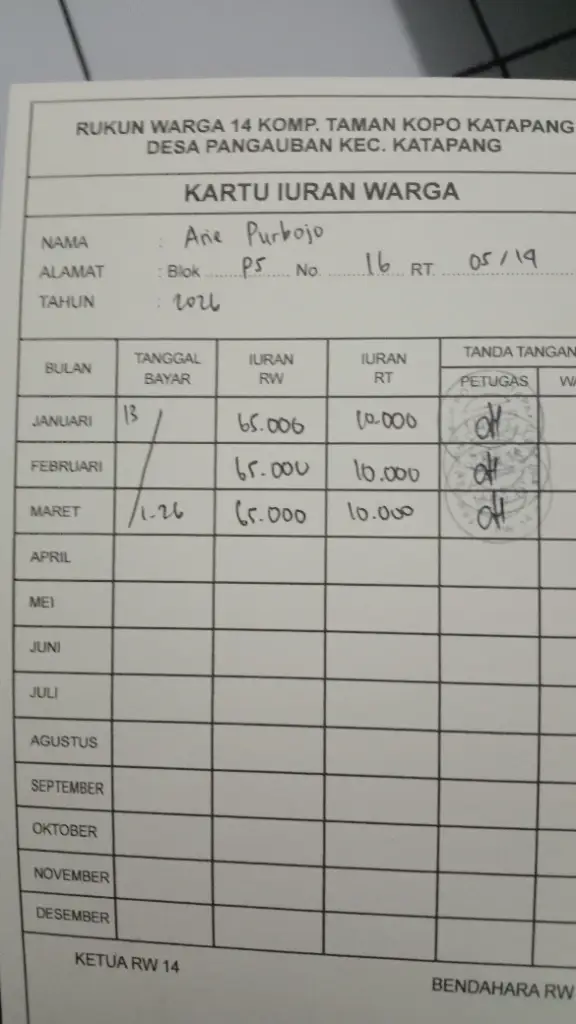 RUKUN WARGA 14 KOMP. TAMAN KOPO KATAPANG
DESA PANGAUBAN KEC. KATAPANG
KARTU IURAN WARGA
NAMA : Arie Purbojo
ALAMAT : Blok P5 No. 16 RT. 05/14
TAHUN : 2026
BULAN TANGGAL BAYAR IURAN RW IURAN RT TANDA TANGAN
PETUGAS WA
JANUARI 13 / 65.000 10.000
FEBRUARI 65.000 10.000
MARET 1-26 65.000 10.000
APRIL
MEI
JUNI
JULI
AGUSTUS
SEPTEMBER
OKTOBER
NOVEMBER
DESEMBER
KETUA RW 14
BENDAHARA RW